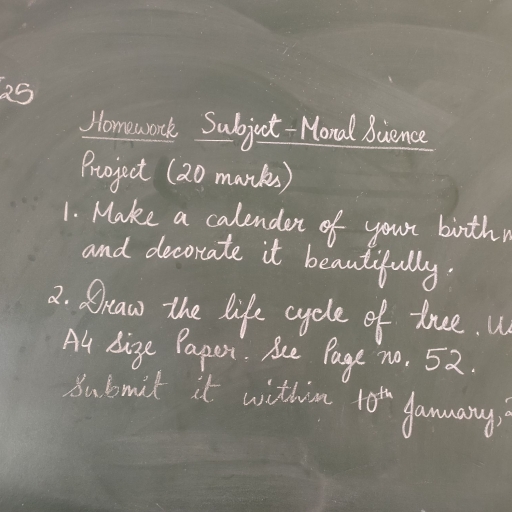 25
Homework Subject - Moral Science
Project (20 marks)
1. Make a calender of your birth
and decorate it beautifully.
2. Draw the life cycle of tree.
A4 Size Paper. See Page no. 52.
Submit it within 10th January,